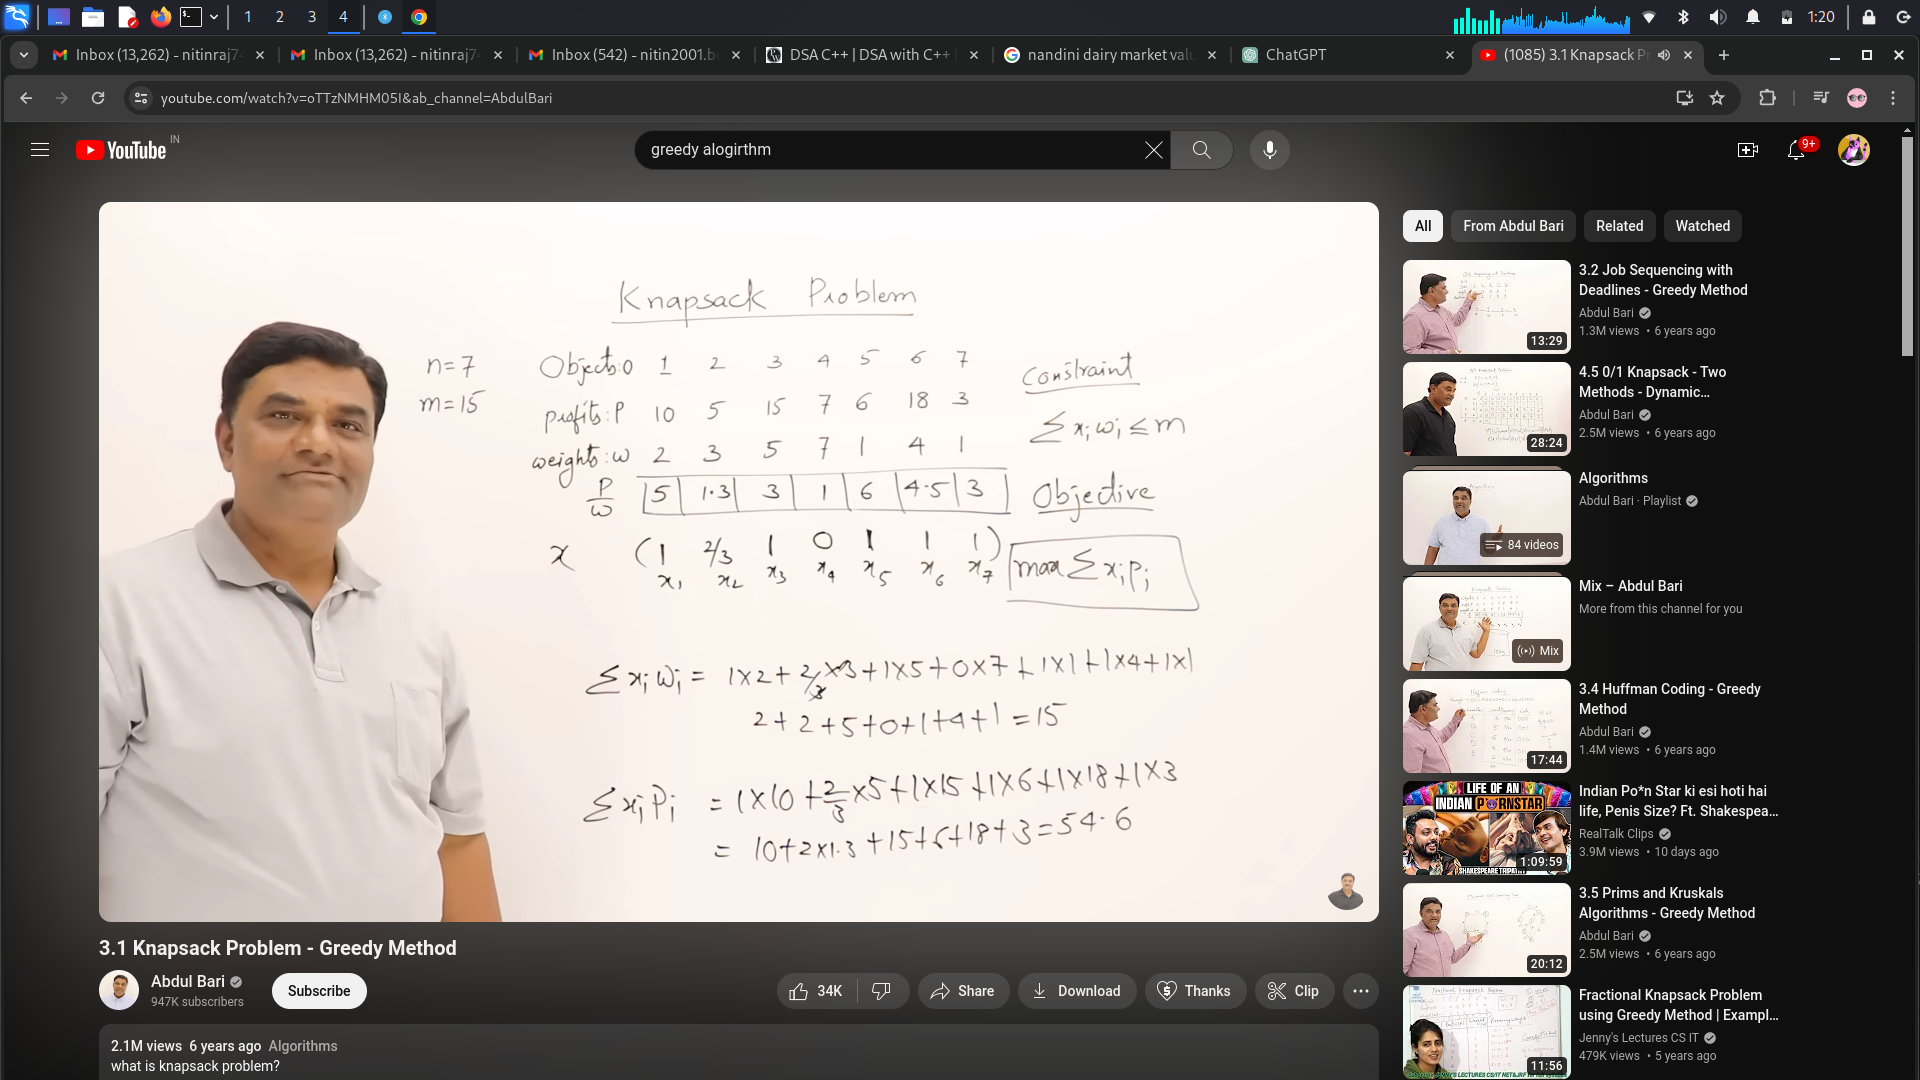 1 2 3 4 1:20
Inbox (13,262) - nitinraj7 Inbox (13,262) - nitinraj7 Inbox (542) - nitin2001.b DSA C++ | DSA with C++ nandini dairy market val ChatGPT (1085) 3.1 Knapsack P
youtube.com/watch?v=oTTzNMHM05I&ab_channel=AbdulBari
YouTube IN
greedy alogirthm
9+
Knapsack Problem
n=7
m=15
Objects:O 1 2 3 4 5 6 7
profits:P 10 5 15 7 6 18 3
weights:w 2 3 5 7 1 4 1
P/w 5 1.3 3 1 6 4.5 3
x (1 2/3 1 0 1 1 1)
x₁ x₂ x₃ x₄ x₅ x₆ x₇
Constraint
∑xᵢwᵢ ≤ m
Objective
max ∑xᵢpᵢ
∑xᵢwᵢ = 1×2+2/3×3+1×5+0×7+1×1+1×4+1×1
2+2+5+0+1+4+1=15
∑xᵢPᵢ = 1×10+2/3×5+1×15+1×6+1×18+1×3
= 10+2×1.3+15+6+18+3=54.6
3.1 Knapsack Problem - Greedy Method
Abdul Bari
947K subscribers
Subscribe
34K
Share
Download
Thanks
Clip
2.1M views 6 years ago Algorithms
what is knapsack problem?
All From Abdul Bari Related Watched
13:29
3.2 Job Sequencing with
Deadlines - Greedy Method
Abdul Bari
1.3M views • 6 years ago
28:24
4.5 0/1 Knapsack - Two
Methods - Dynamic...
Abdul Bari
2.5M views • 6 years ago
84 videos
Algorithms
Abdul Bari · Playlist
Mix
Mix – Abdul Bari
More from this channel for you
17:44
3.4 Huffman Coding - Greedy
Method
Abdul Bari
1.4M views • 6 years ago
LIFE OF AN
INDIAN PORNSTAR
SHAKESPEARE TRIPATHY
1:09:59
Indian Po*n Star ki esi hoti hai
life, Penis Size? Ft. Shakespea...
RealTalk Clips
3.9M views • 10 days ago
20:12
3.5 Prims and Kruskals
Algorithms - Greedy Method
Abdul Bari
2.5M views • 6 years ago
11:56
Fractional Knapsack Problem
using Greedy Method | Exampl...
Jenny's Lectures CS IT
479K views • 5 years ago